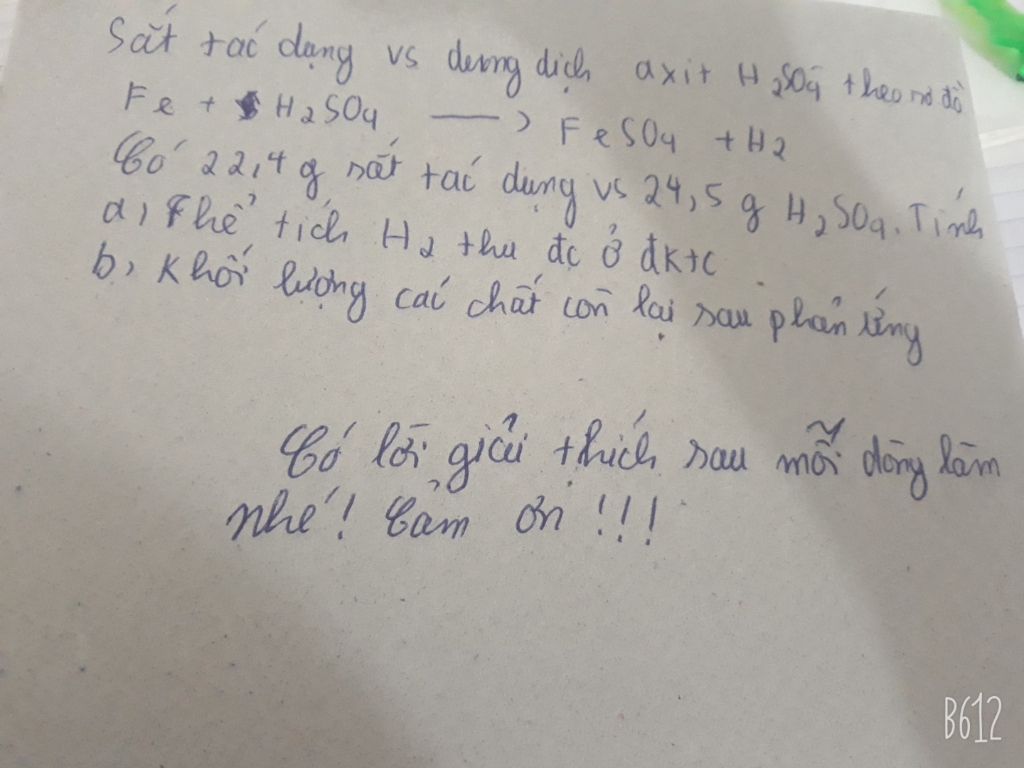 Sắt tác dụng vs dung dịch axit H2SO4 theo sơ đồ
Fe + H2SO4 → FeSO4 + H2
Có 22,4 g sắt tác dụng vs 24,5 g H2SO4. Tính
a, Thể tích H2 thu đc ở đktc
b, Khối lượng các chất còn lại sau phản ứng
Có lời giải thích sau mỗi dòng làm
nhé! Cảm ơn!!!
B612